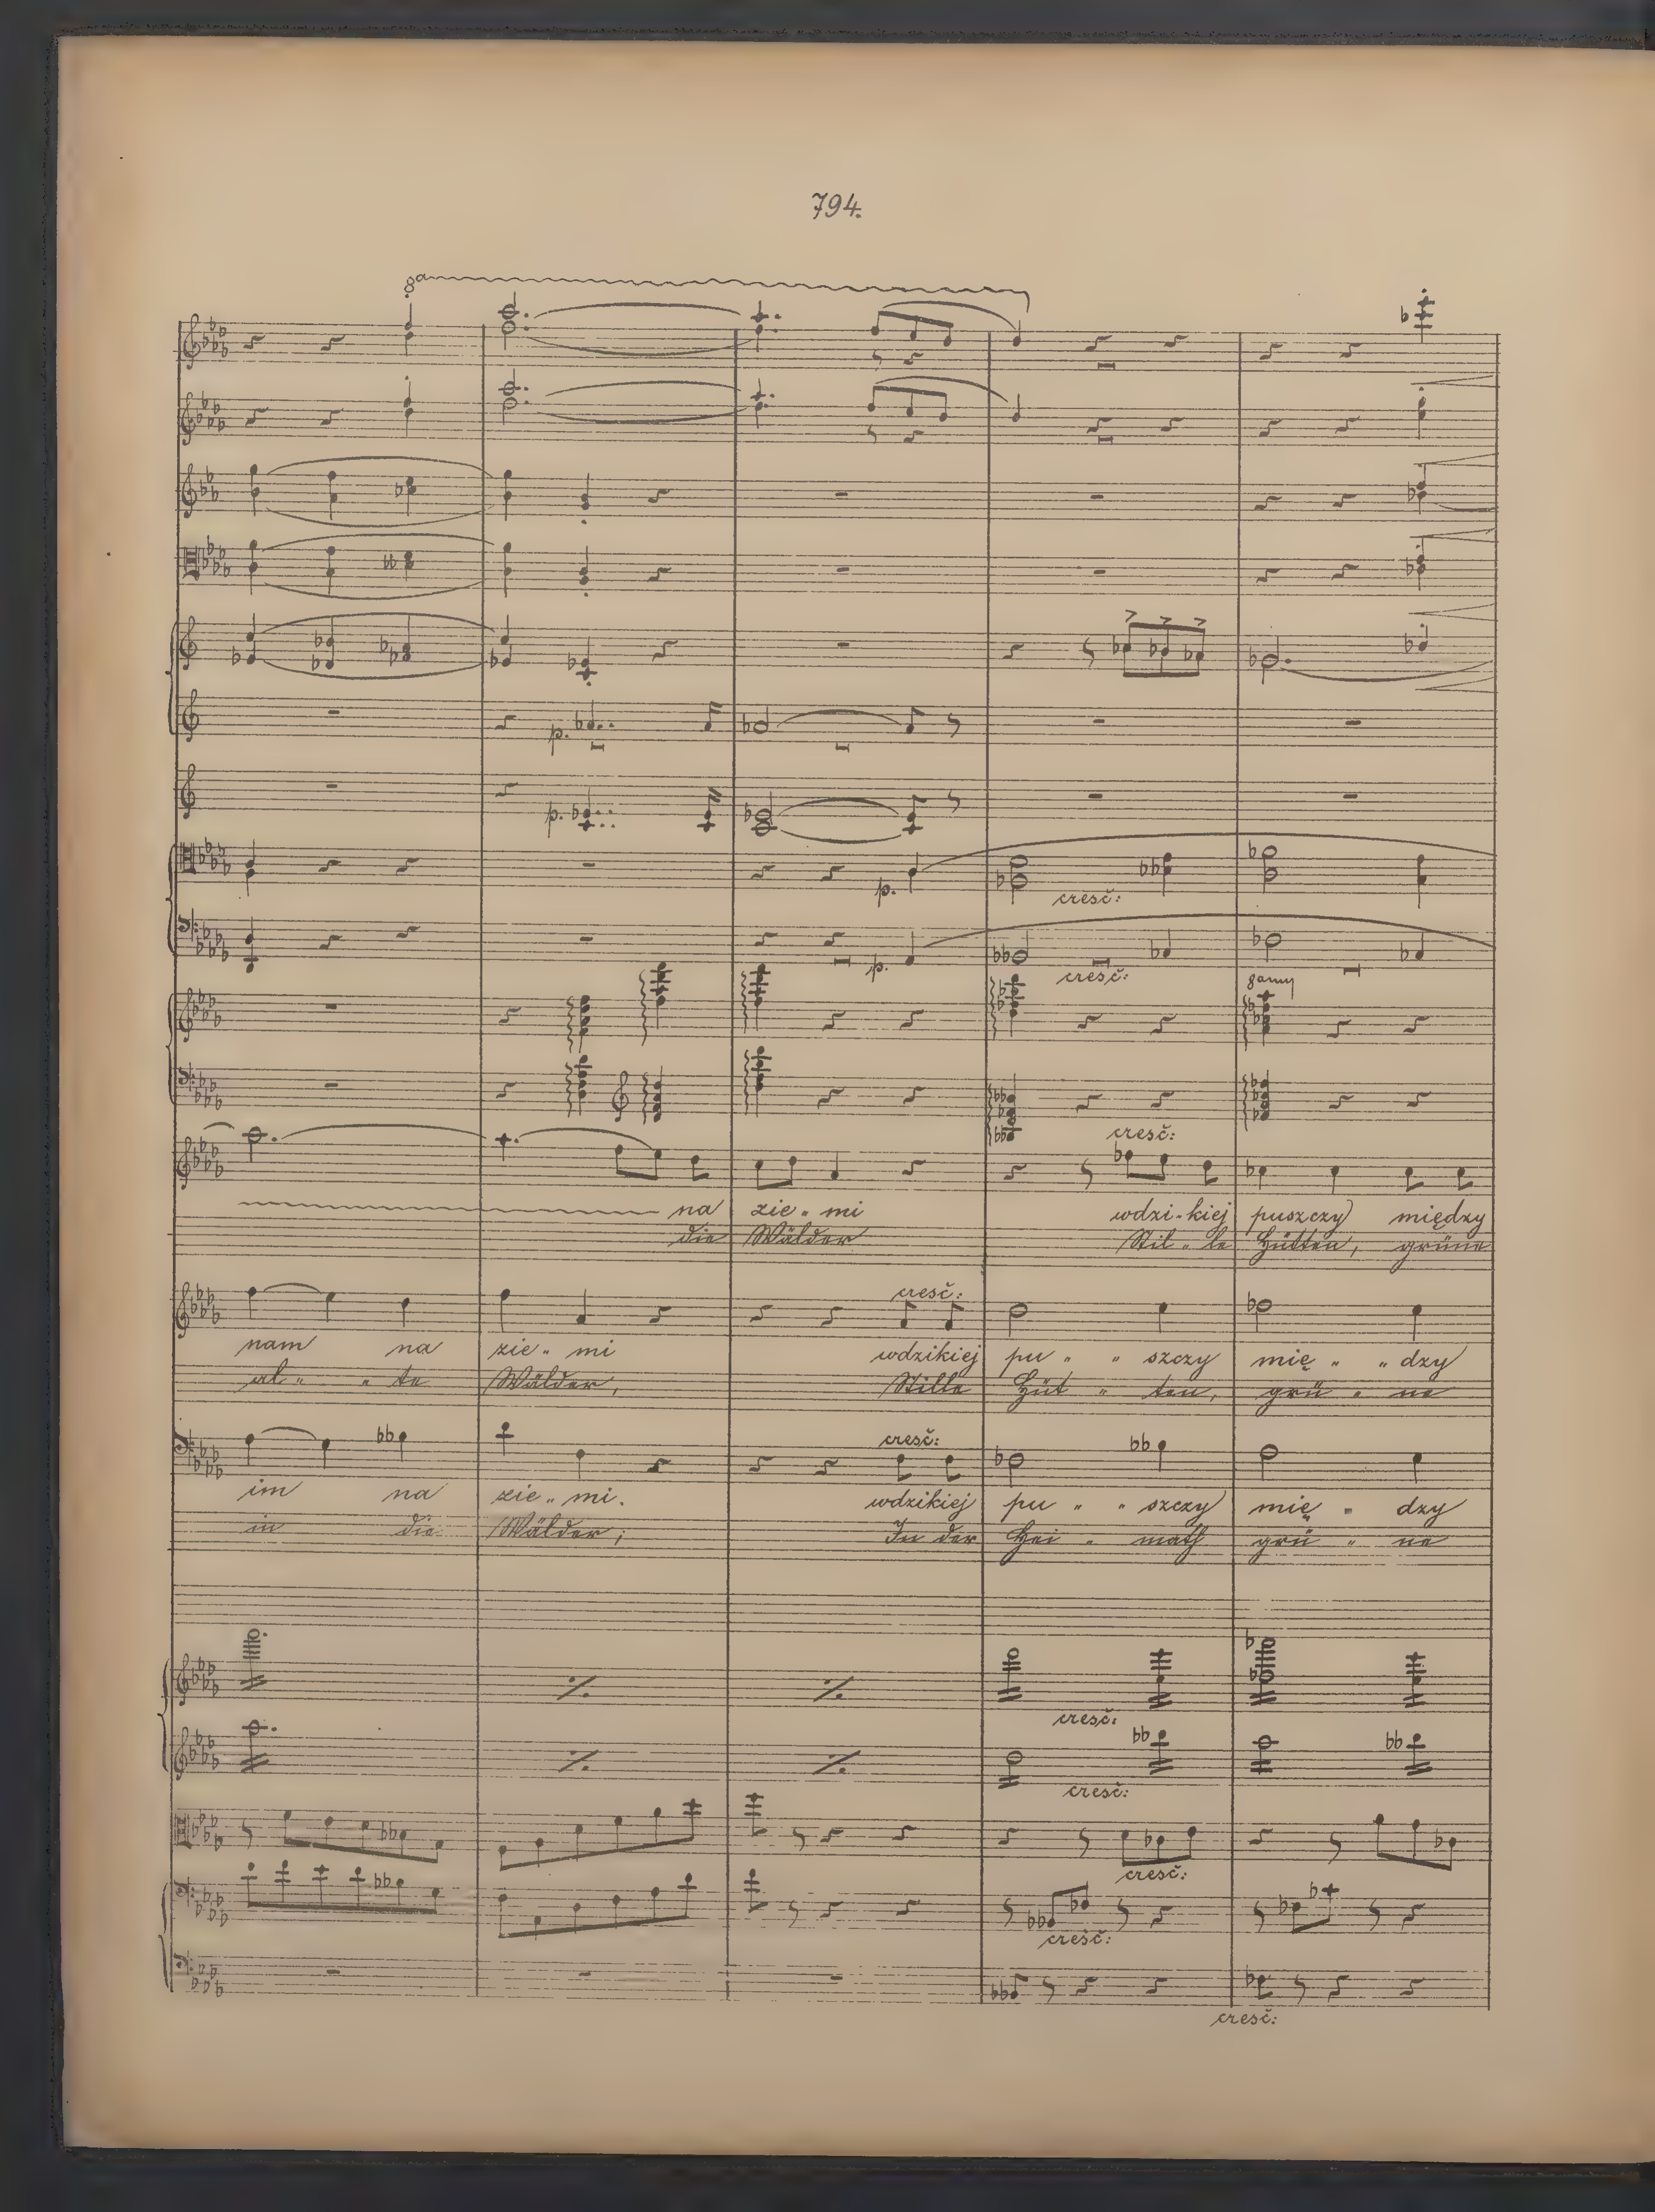 794.
8a
p.
p.
p.
cresč:
p.
cresč:
gamy
cresč:
na zie„ mi wdzi-kiej puszczy między
die Wälder Stil„ le Hütten, grüne
cresč:
nam na zie„ mi wdzikiej pu „ „ szczy mię „ „ dzy
al„ „ te Wälder, Stille Hüt „ ten, grü „ ne
cresč:
im na zie„ mi. wdzikiej pu „ „ szczy mię „ dzy
in die Wälder; In der Hei „ math grü „ ne
cresč:
cresč:
cresč:
cresč:
cresč: